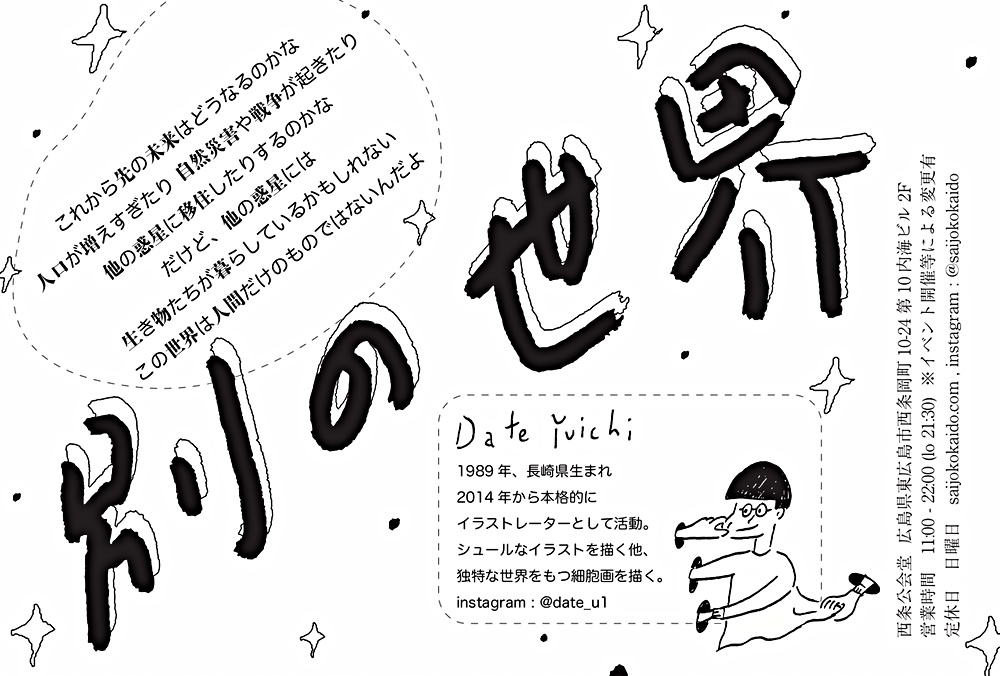 別の世界
これから先の未来はどうなるのかな
人口が増えすぎたり 自然災害や戦争が起きたり
他の惑星に移住したりするのかな
だけど、他の惑星には
生き物たちが暮らしているかもしれない
この世界は人間だけのものではないんだよ
Date Yuichi
1989 年、長崎県生まれ
2014 年から本格的に
イラストレーターとして活動。
シュールなイラストを描く他、
独特な世界をもつ細胞画を描く。
instagram : @date_u1
西条公会堂 広島県東広島市西条岡町 10-24 第 10 内海ビル 2F
営業時間 11:00 - 22:00 (lo 21:30) ※イベント開催等による変更有
定休日 日曜日 saijokokaido.com . instagram : @saijokokaido